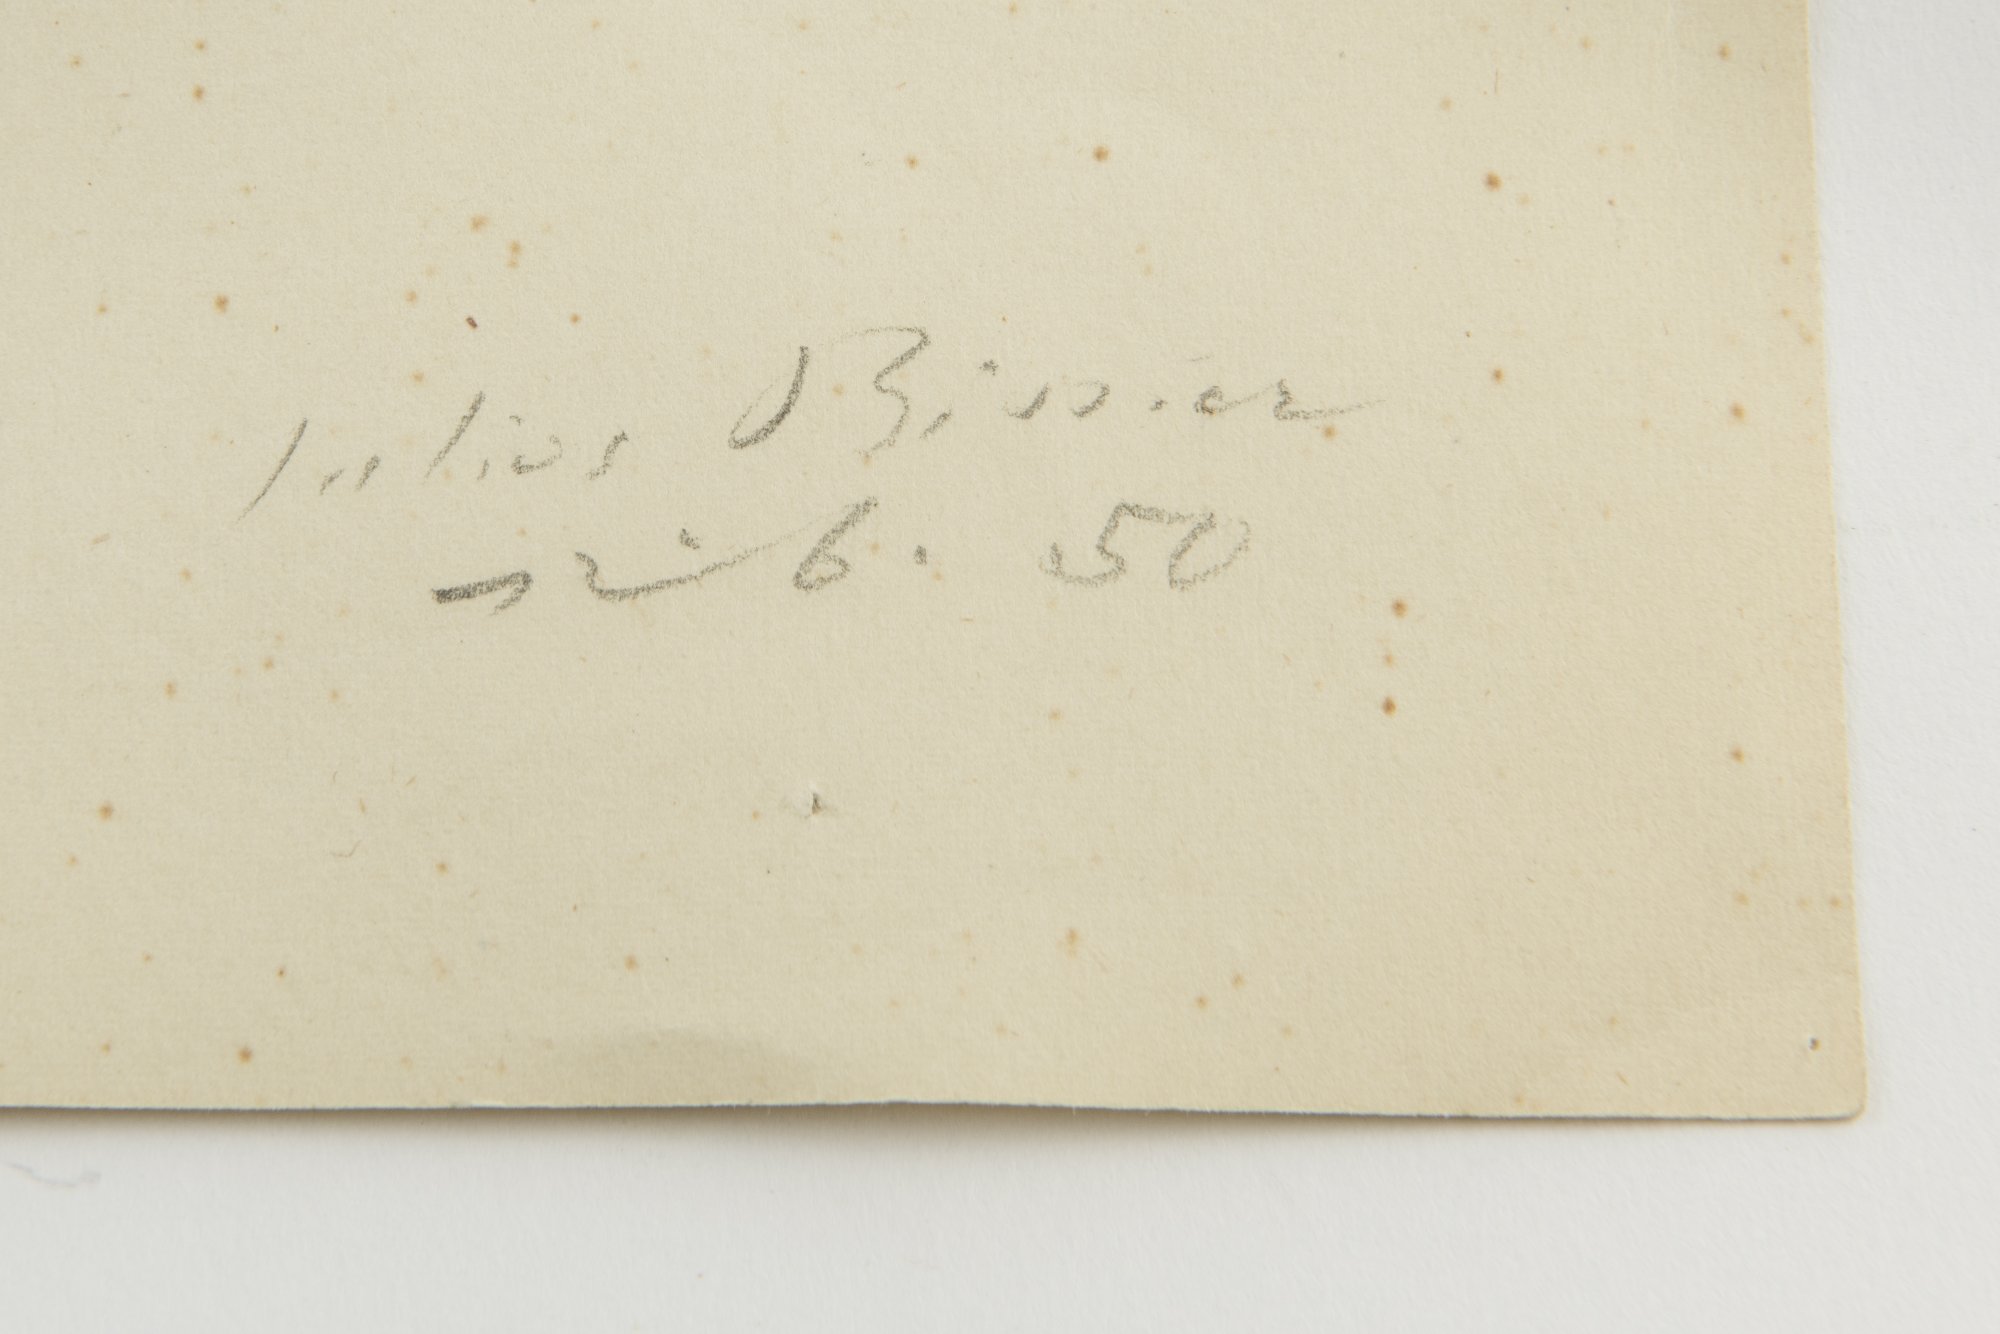 Julius Bissier
6. 50